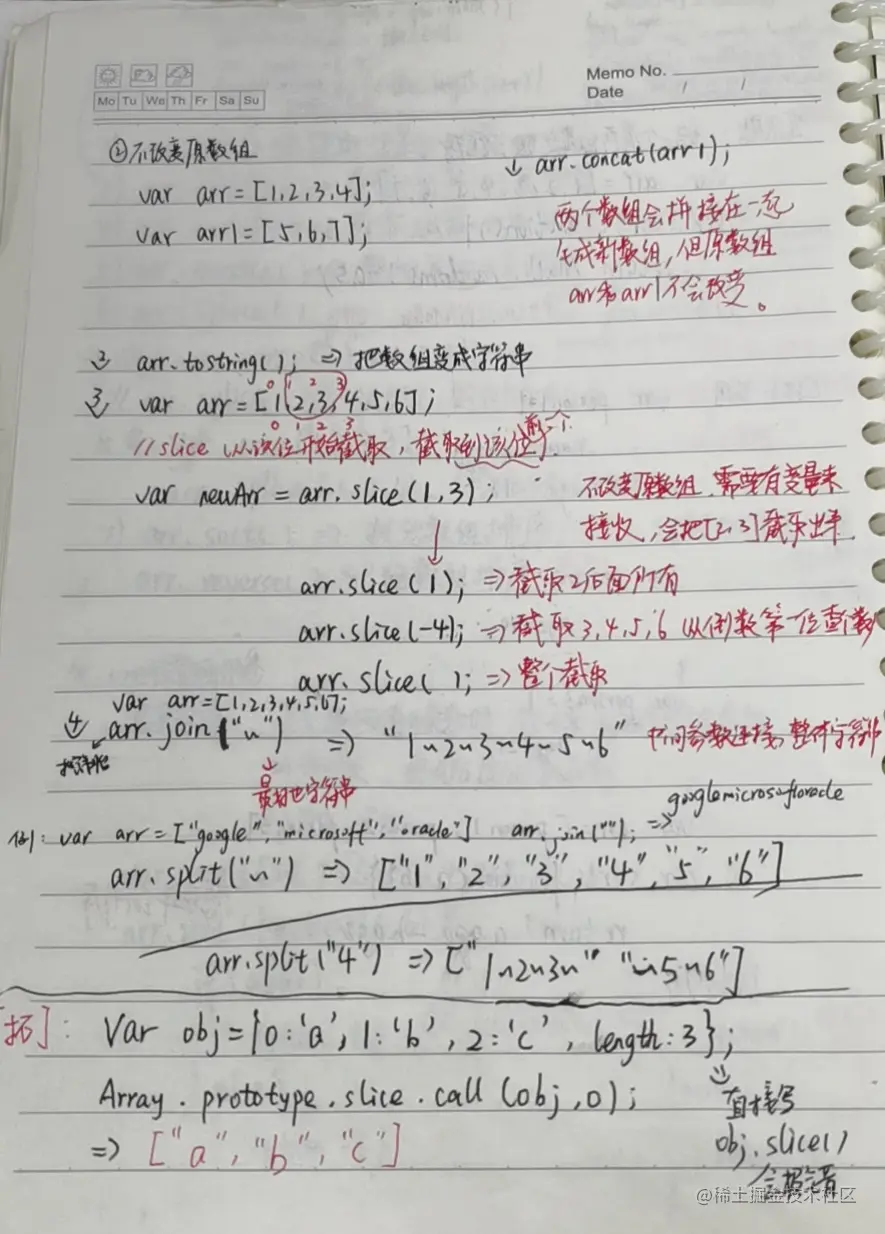 Memo No.
Mo Tu We Th Fr Sa Su
Date / /
②不改变原数组
↓ arr.concat(arr1);
var arr = [1,2,3,4];
var arr1 = [5,6,7];
两个数组会拼接在一起
生成新数组,但原数组
arr和arr1不会改变。
2 arr.tostring(); => 把数组变成字符串
0 1 2 3
3 var arr = [1,2,3,4,5,6];
0 1 2 3
//slice 从该位开始截取,截取到该位前一个
var newArr = arr.slice(1,3);
不改变原数组,需要有变量来
接收,会把[2,3]截取出来
↓
arr.slice(1); => 截取2后面所有
arr.slice(-4); => 截取3,4,5,6 从倒数第一位查个数
arr.slice( ); => 整个截取
var arr=[1,2,3,4,5,6];
4 arr.join("~") => "1~2~3~4~5~6"
↓
例: var arr = ["google","microsoft","oracle"] arr.join(""); => googlemicrosoftoracle
arr.split("~") => ["1","2","3","4","5","6"]
arr.split("4") => ["1~2~3~" "~5~6"]
拓]: Var obj = {0:'a', 1:'b', 2:'c', length:3};
Array.prototype.slice.call(obj,0);
=> ["a","b","c"]
直接写
obj.slice()
会报错
@稀土掘金技术社区